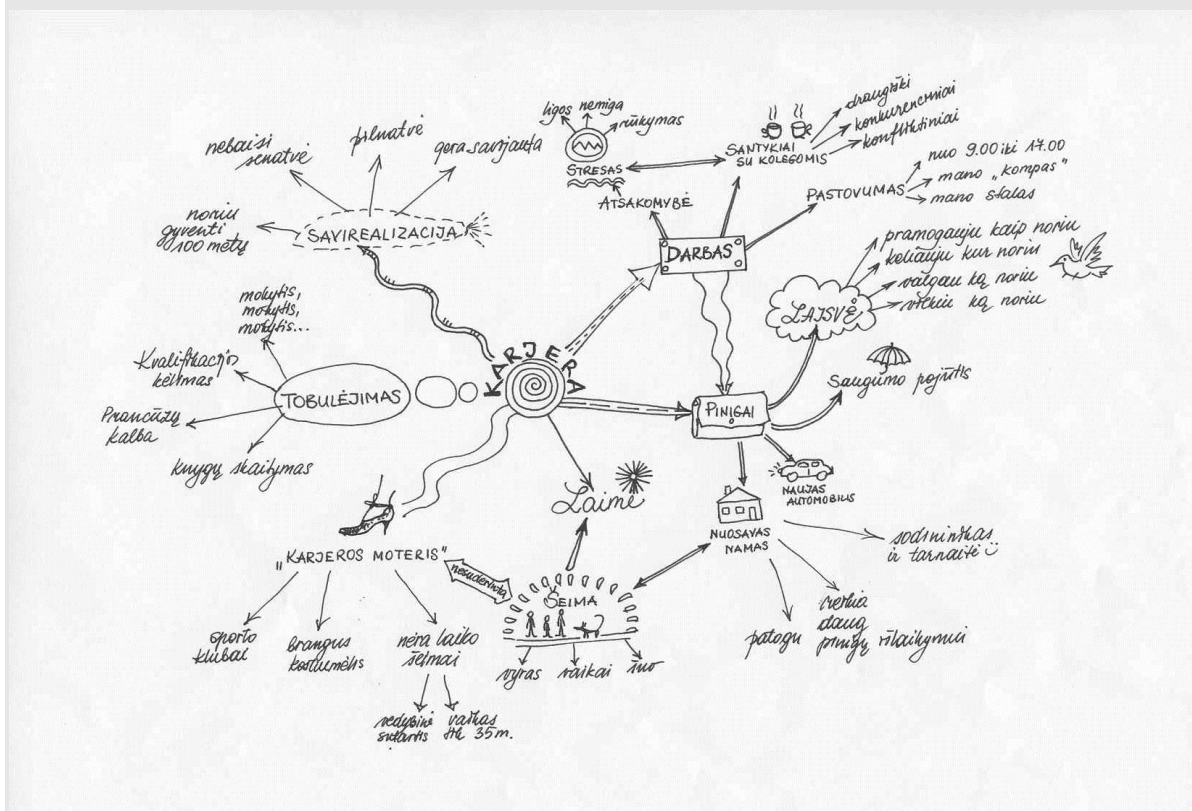 KARJERA
SAVIREALIZACIJA
nebaisi
senatvė
pilnatvė
gera savijauta
noriu
gyventi
100 metų
TOBULĖJIMAS
mokytis,
mokytis,
mokytis...
Kvalifikacijos
kėlimas
Prancūzų
kalba
knygų skaitymas
„KARJEROS MOTERIS“
sporto
klubai
brangus
kostiumėlis
nėra laiko
šeimai
vedybinė
sutartis
vaikas
tik 35m.
nesuderinta
ŠEIMA
vyras
vaikai
šuo
Laimė
DARBAS
ATSAKOMYBĖ
STRESAS
ligos
nemiga
rūkymas
SANTYKIAI
SU KOLEGOMIS
draugiški
konkurenciniai
konfliktiniai
PASTOVUMAS
nuo 9.00 iki 17.00
mano „kompas“
mano stalas
PINIGAI
LAISVĖ
pramogauju kaip noriu
keliauju kur noriu
valgau ką noriu
vilkiu ką noriu
Saugumo pojūtis
NAUJAS
AUTOMOBILIS
NUOSAVAS
NAMAS
sodininkas
ir tarnaitė
patogu
reikia
daug
pinigų išlaikymui